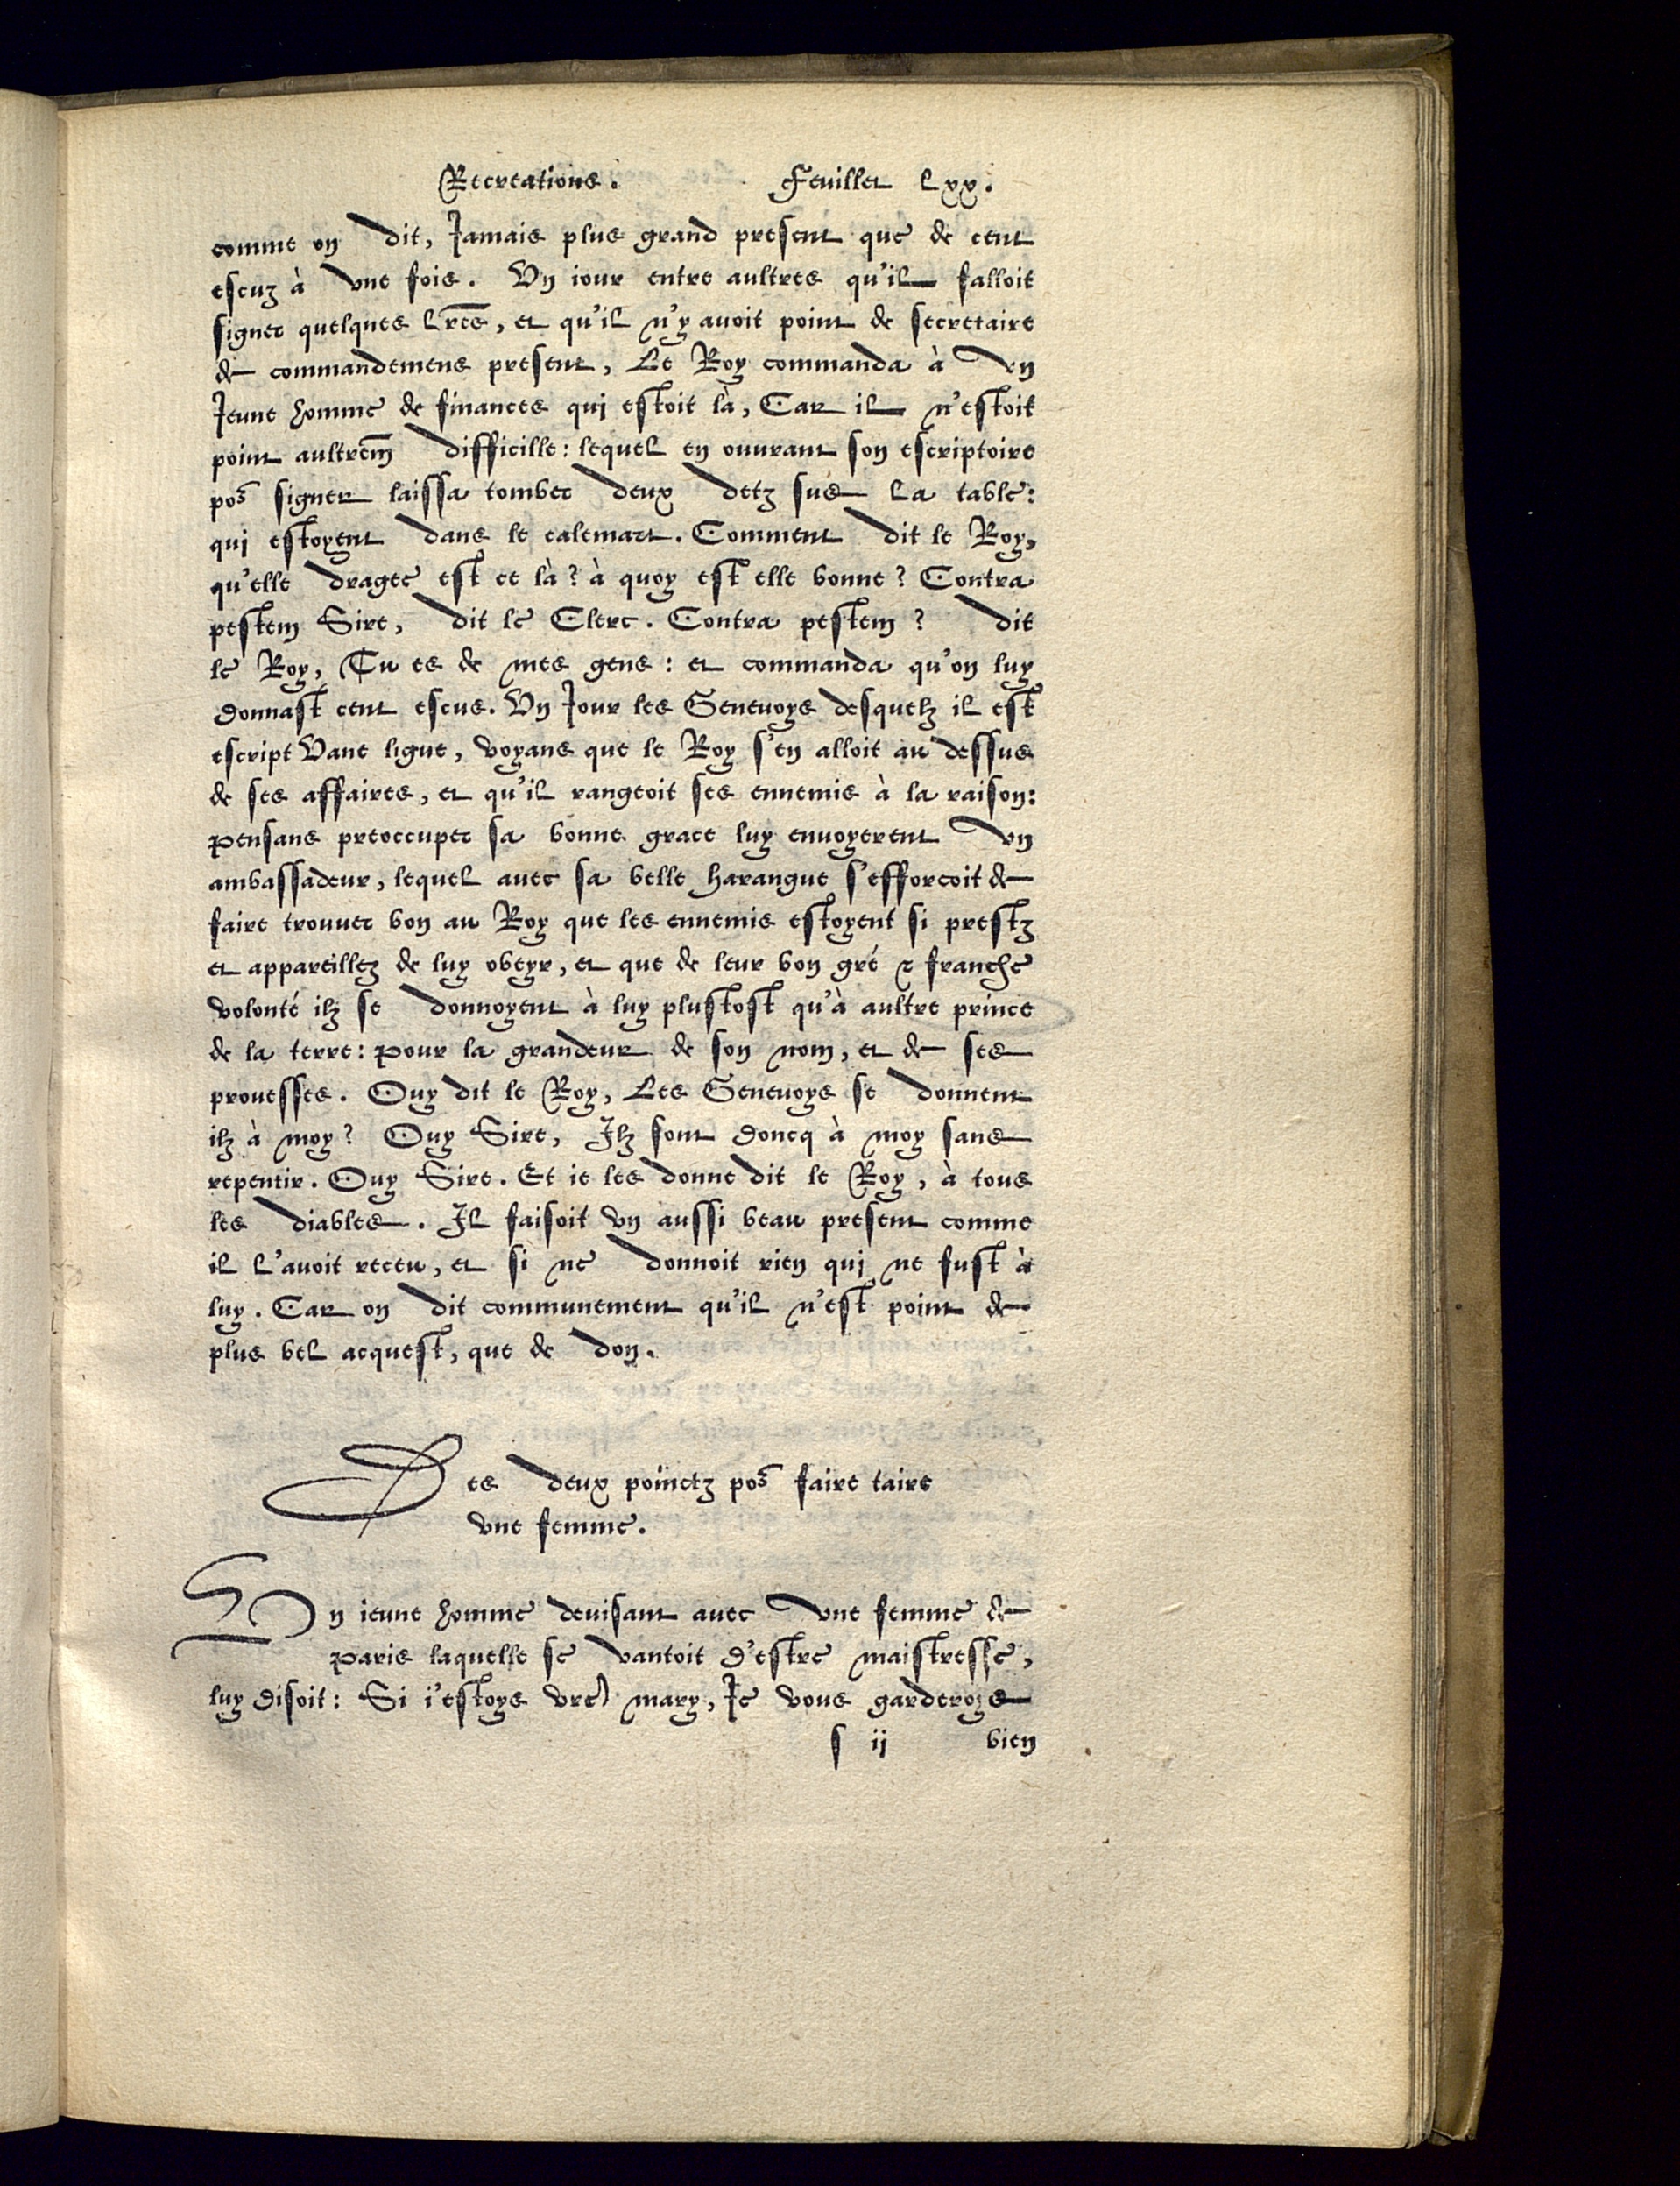 Recreations. Feuillet Lxx.
comme on dit, Jamais plus grand present que de cent
escuz à vne fois. Vn iour entre aultres qu'il falloit
signer quelques lr̅e̅s, et qu'il n'y auoit point de secretaire
de commandemens present, Le Roy commanda à vn
Jeune homme de finances qui estoit là, Car il n'estoit
point aultrem̅ difficille: lequel en ouurant son escriptoire
po᷑ signer laissa tomber deux detz sus la table:
qui estoyent dans le calemart. Comment dit le Roy,
qu'elle dragee est ce là? à quoy est elle bonne? Contra
pestem Sire, dit le Clerc. Contra pestem? dit
le Roy, Tu es de mes gens: et commanda qu'on luy
donnast cent escus. Vn Jour les Geneuoys desquelz il est
escript Vane ligue, voyans que le Roy s'en alloit au dessus
de ses affaires, et qu'il rangeoit ses ennemis à la raison:
pensans preoccuper sa bonne grace luy enuoyerent vn
ambassadeur, lequel auec sa belle harangue s'efforcoit de
faire trouuer bon au Roy que les ennemis estoyent si prestz
et appareillez de luy obeyr, et que de leur bon gré & franche
volonté ilz se donnoyent à luy plustost qu'à aultre prince
de la terre: pour la grandeur de son nom, et de ses
prouesses. Ouy dit le Roy, Les Geneuoys se donnent
ilz à moy? Ouy Sire, Ilz sont doncq à moy sans
repentir. Ouy Sire. Et ie les donne dit le Roy, à tous
les diables. Il faisoit vn aussi beau present comme
il l'auoit receu, et si ne donnoit rien qui ne fust à
luy. Car on dit communement qu'il n'est point de
plus bel acquest, que de don.
Des deux poinctz po᷑ faire taire
vne femme.
Vn ieune homme deuisant auec vne femme de
Paris laquelle se vantoit d'estre maistresse,
luy disoit: Si i'estoys vr̅e mary, Je vous garderoys
s ij bien